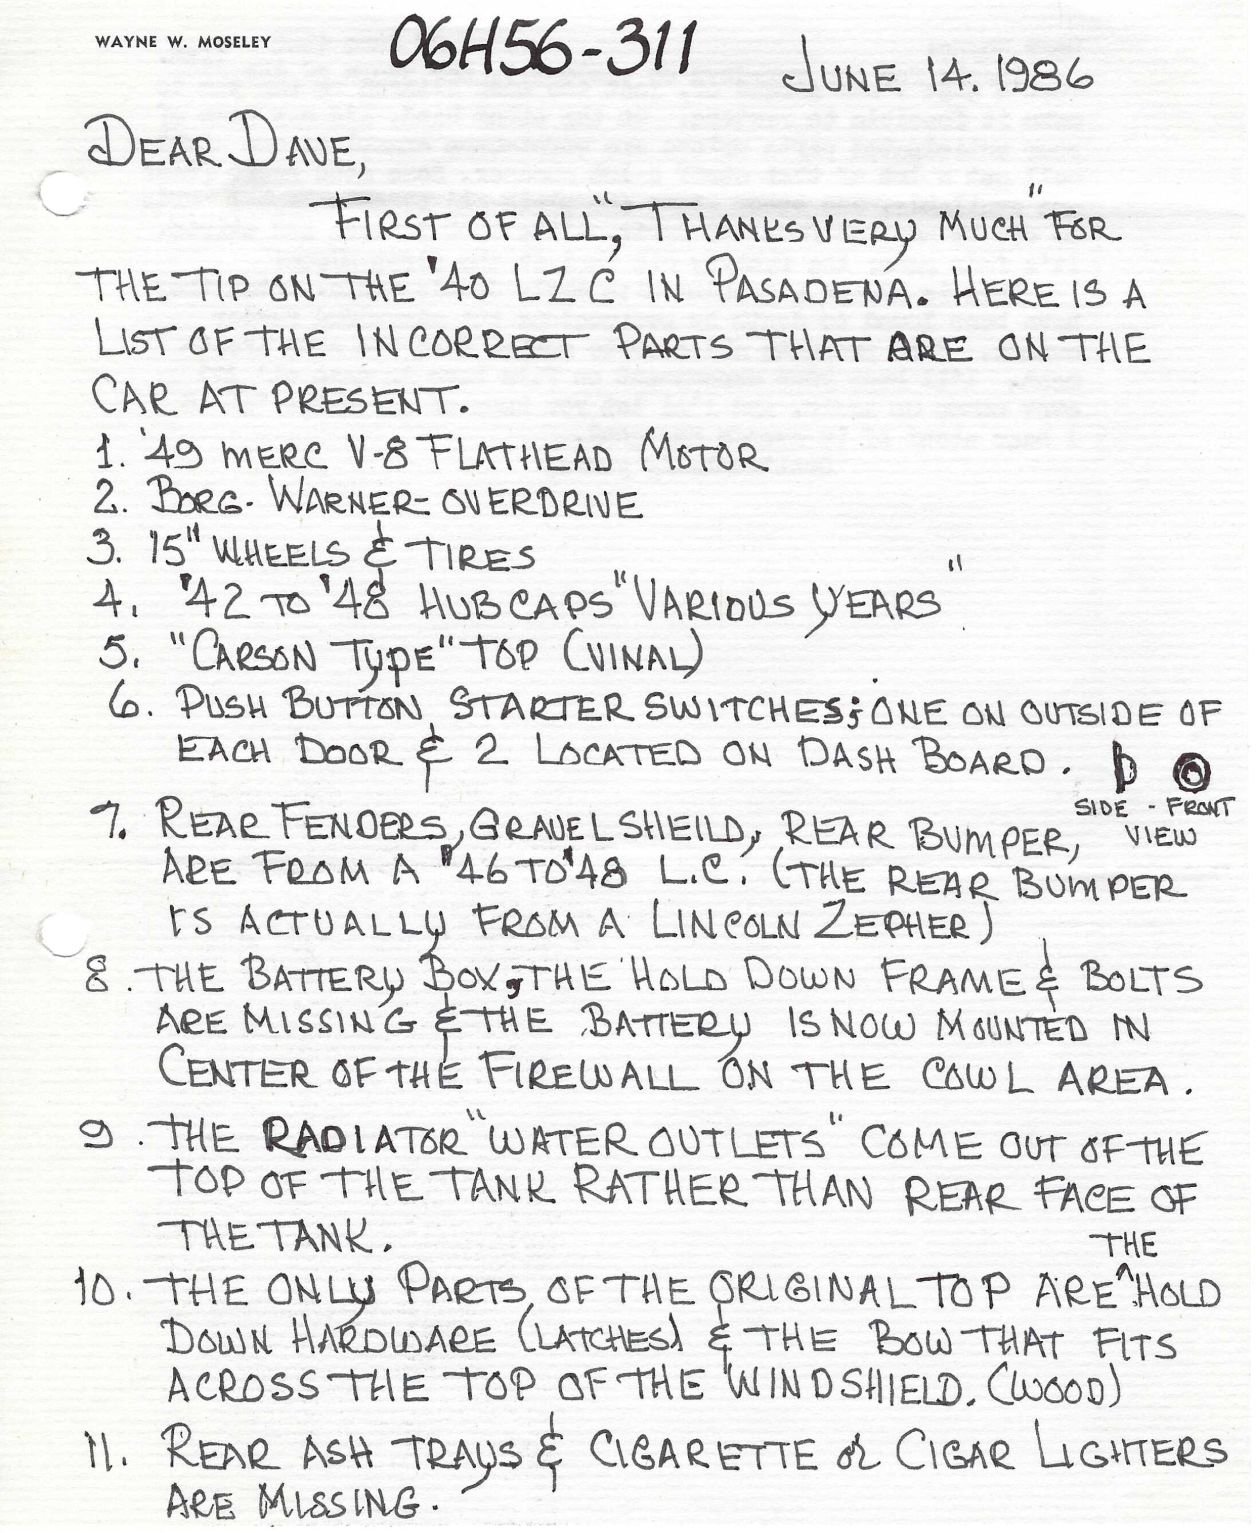 WAYNE W. MOSELEY
06H56-311
JUNE 14. 1986
DEAR DAVE,
FIRST OF ALL, "THANKS VERY MUCH" FOR
THE TIP ON THE '40 LZC IN PASADENA. HERE IS A
LIST OF THE INCORRECT PARTS THAT ARE ON THE
CAR AT PRESENT.
1. '49 MERC V-8 FLATHEAD MOTOR
2. BORG-WARNER-OVERDRIVE
3. 15" WHEELS & TIRES
4. '42 TO '48 HUBCAPS "VARIOUS YEARS"
5. "CARSON TYPE" TOP (VINAL)
6. PUSH BUTTON STARTER SWITCHES; ONE ON OUTSIDE OF
EACH DOOR & 2 LOCATED ON DASH BOARD.
SIDE - FRONT
VIEW
7. REAR FENDERS, GRAVEL SHEILD, REAR BUMPER,
ARE FROM A '46 TO '48 L.C. (THE REAR BUMPER
IS ACTUALLY FROM A LINCOLN ZEPHER)
8. THE BATTERY BOX, THE HOLD DOWN FRAME & BOLTS
ARE MISSING & THE BATTERY IS NOW MOUNTED IN
CENTER OF THE FIREWALL ON THE COWL AREA.
9. THE RADIATOR "WATER OUTLETS" COME OUT OF THE
TOP OF THE TANK RATHER THAN REAR FACE OF
THE TANK.
10. THE ONLY PARTS OF THE ORIGINAL TOP ARE ^THE HOLD
DOWN HARDWARE (LATCHES) & THE BOW THAT FITS
ACROSS THE TOP OF THE WINDSHIELD. (WOOD)
11. REAR ASH TRAYS & CIGARETTE or CIGAR LIGHTERS
ARE MISSING.